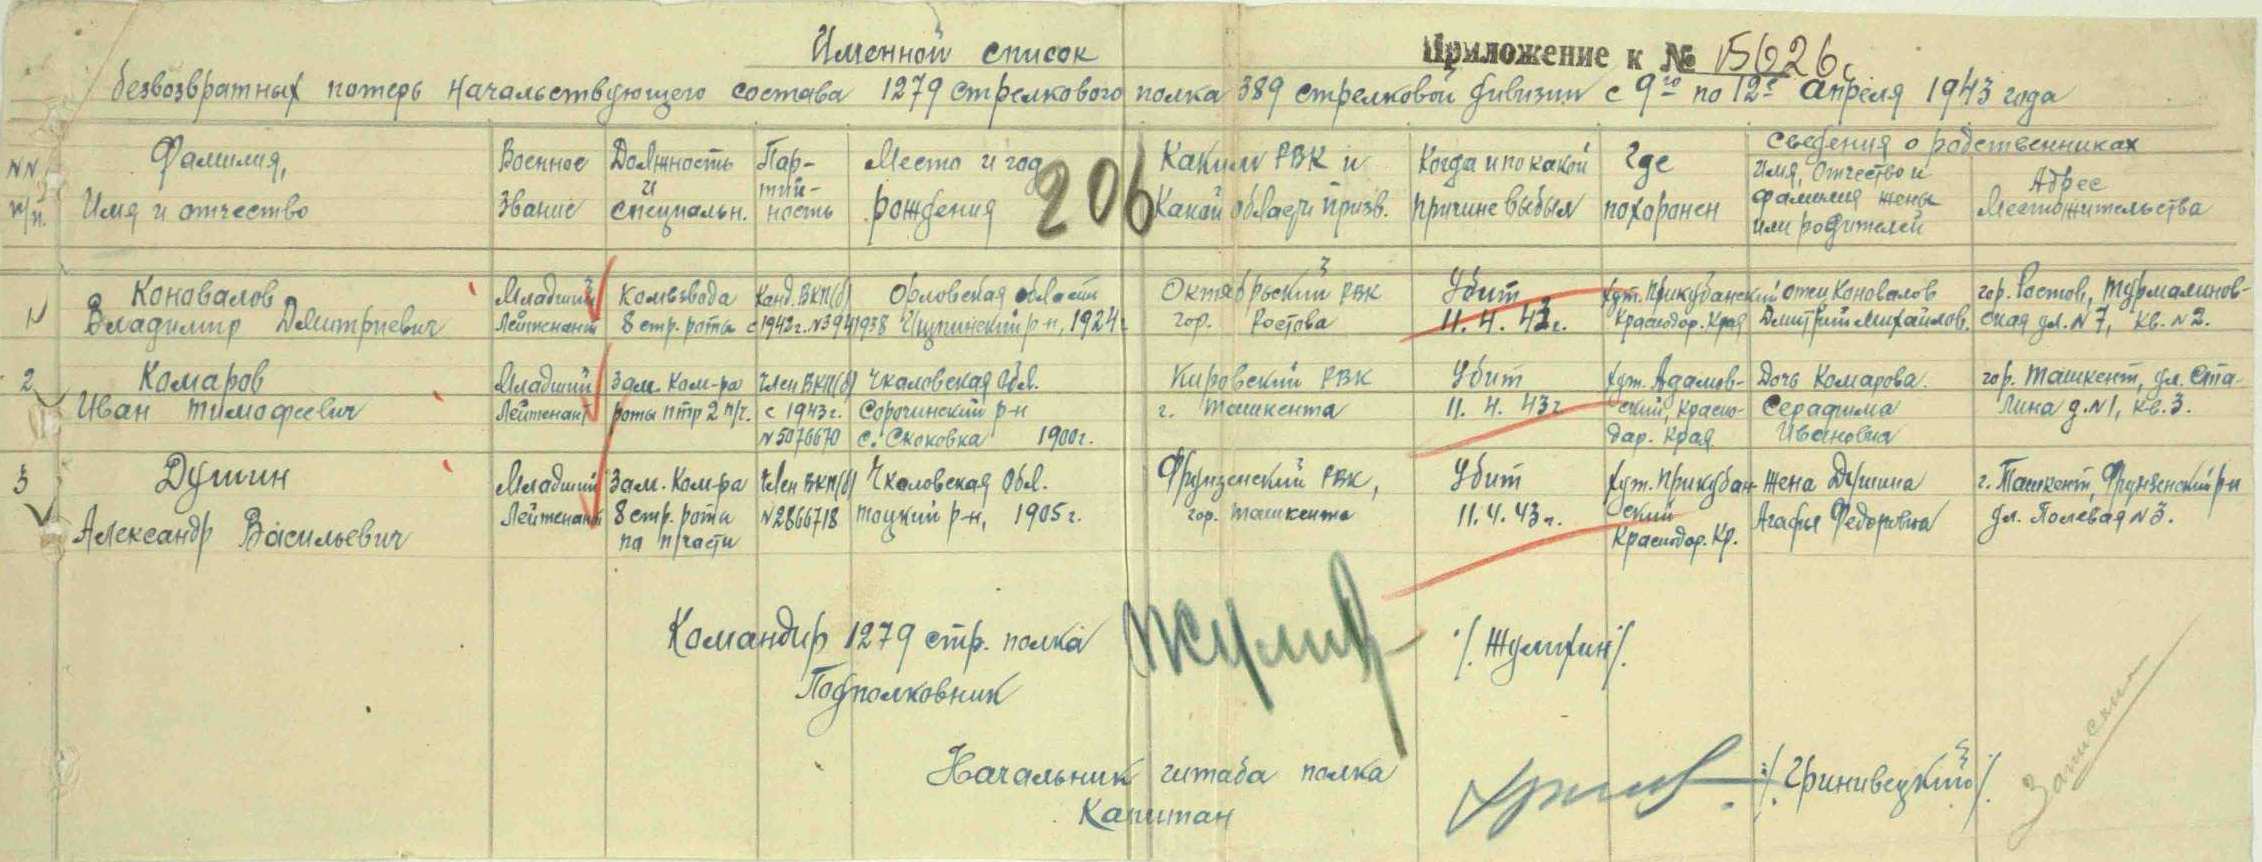 Именной список
Приложение к № 15626с
безвозвратных потерь начальствующего состава 1279 стрелкового полка 389 стрелковой дивизии с 9го по 12е апреля 1943 года
NN п/п.
Фамилия,
Имя и отчество
Военное
Звание
Должность
и
специальн.
Пар-
тий-
ность
Место и год
рождения
206
Каким РВК и
Какой области призв.
Когда и по какой
причине выбыл
Где
похоронен
Сведения о родственниках
Имя, Отчество и
фамилия жены
или родителей
Адрес
Местожительства
1
Коновалов
Владимир Дмитриевич
Младший
Лейтенант
Комвзвода
8 стр. роты
Канд. ВКП(б)
с 1942г. N3941938
Орловская область
р-н, 1924г.
Октябрьский РВК
гор. Ростова
Убит
11. 4. 43г.
хут. Прикубанский
Краснодар. Края
отец Коновалов
Дмитрий Михайлов.
гор. Ростов, Турмалинов-
ская ул. N 7, кв. N 2.
2
Комаров
Иван Тимофеевич
Младший
Лейтенант
Зам. Ком-ра
роты птр 2 п/ч.
Член ВКП(б)
с 1943г.
N 5076670
Чкаловская Обл.
Сорочинский р-н
с. Скоковка 1900г.
Кировский РВК
г. Ташкента
Убит
11. 4. 43г
хут. Адамов-
ский, Красно-
дар. Края
Дочь Комарова
Серафима
Ивановна
гор. Ташкент, ул. Ста-
лина д. N1, кв. 3.
3
Душин
Александр Васильевич
Младший
Лейтенант
Зам. Ком-ра
8 стр. роты
по п/части
Член ВКП(б)
N 2866718
Чкаловская Обл.
Тоцкий р-н, 1905г.
Фрунзенский РВК,
гор. Ташкента
Убит
11. 4. 43г.
хут. Прикубан-
ский
Краснодар. Кр.
Жена Душина
Агафья Федоровна
г. Ташкент, Фрунзенский р-н
ул. Полевая N 3.
Командир 1279 стр. полка
Подполковник
/Жулихин/.
Начальник штаба полка
Капитан
/Гриневецкий/.